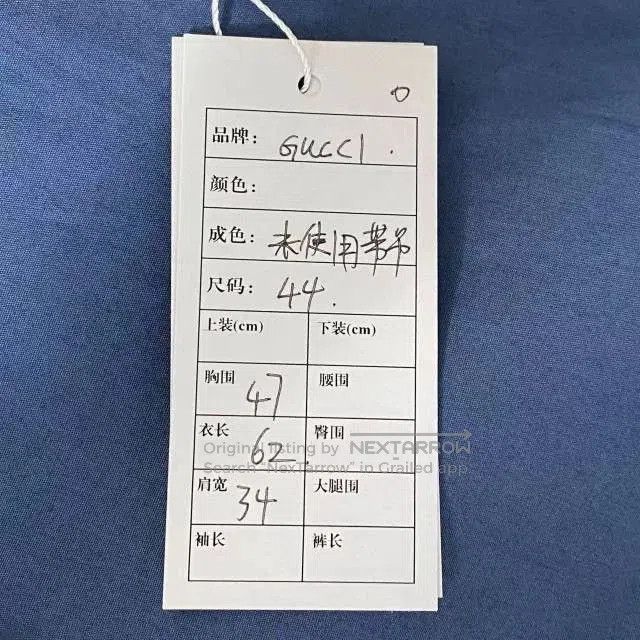 品牌: GUCCI.
颜色:
成色: 未使用带吊
尺码: 44.
上装(cm) 下装(cm)
胸围 47 腰围
衣长 62 臀围
Original listing by NEXTARROW
Search "NexTarrow" in Grailed app
肩宽 34 大腿围
袖长 裤长